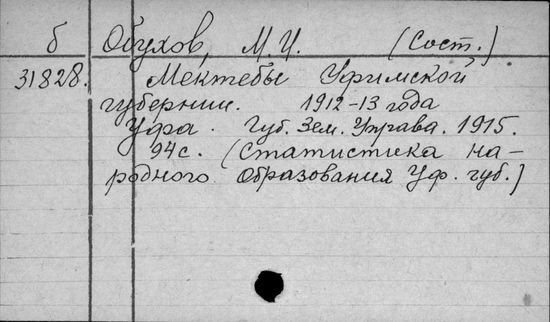 б Обухов, М.И. (Сост.)
31828. Мектебы Уфимской
губернии. 1912-13 года
Уфа. Губ. Зем. Управа. 1915.
94с. (Статистика на-
родного образования Уф. губ.)